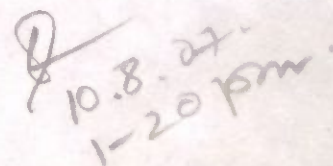 10.8.27.
1-20 pm